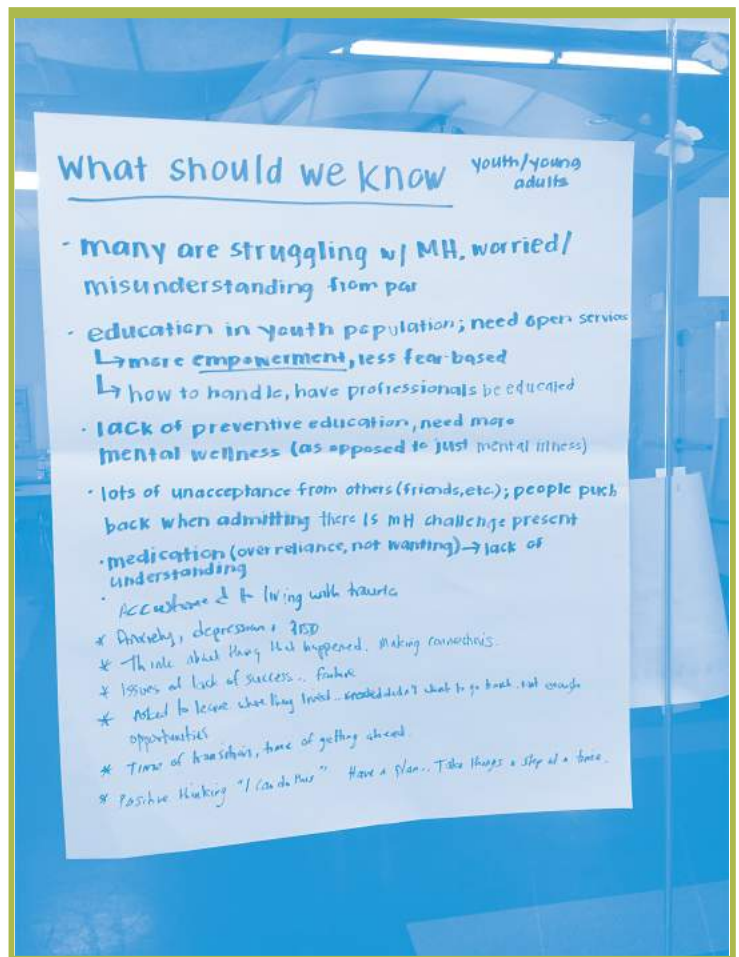 What should we know
youth/young
adults
· many are struggling w/ MH, worried/
misunderstanding from par
· education in youth population; need open services
↳ more empowerment, less fear-based
↳ how to handle, have professionals be educated
· lack of preventive education, need more
mental wellness (as opposed to just mental illness)
· lots of unacceptance from others (friends, etc.); people push
back when admitting there is MH challenge present
· medication (over reliance, not wanting) → lack of
understanding
· Accustomed to living with trauma
* Anxiety, depression,
* Think about thing that happened. Making connections.
* Issues of lack of success.. failure
* Asked to leave where they lived.. didn't want to go back. not enough
opportunities
* Time of transition, time of getting ahead.
* Positive thinking "I can do this" Have a plan.. Take things a step at a time.